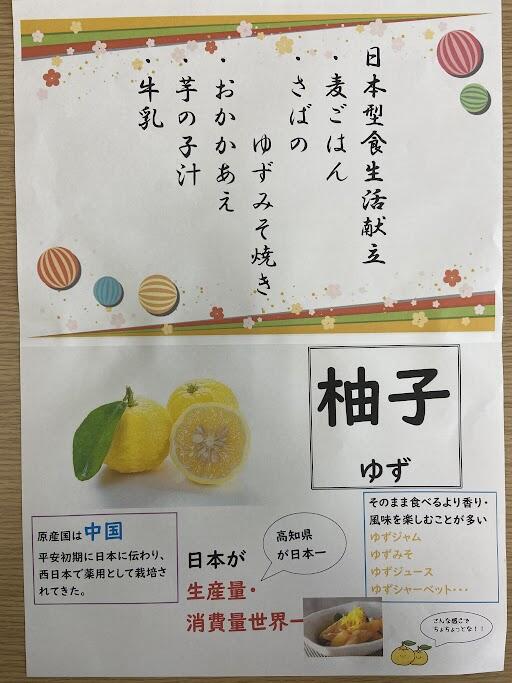 日本型食生活献立
・麦ごはん
・さばの
ゆずみそ焼き
・おかかあえ
・芋の子汁
・牛乳
柚子
ゆず
そのまま食べるより香り・
風味を楽しむことが多い
ゆずジャム
ゆずみそ
ゆずジュース
ゆずシャーベット・・・
原産国は中国
平安初期に日本に伝わり、
西日本で薬用として栽培さ
れてきた。
高知県
が日本一
日本が
生産量・
消費量世界一
こんな感じで
ちょちょっとな！！